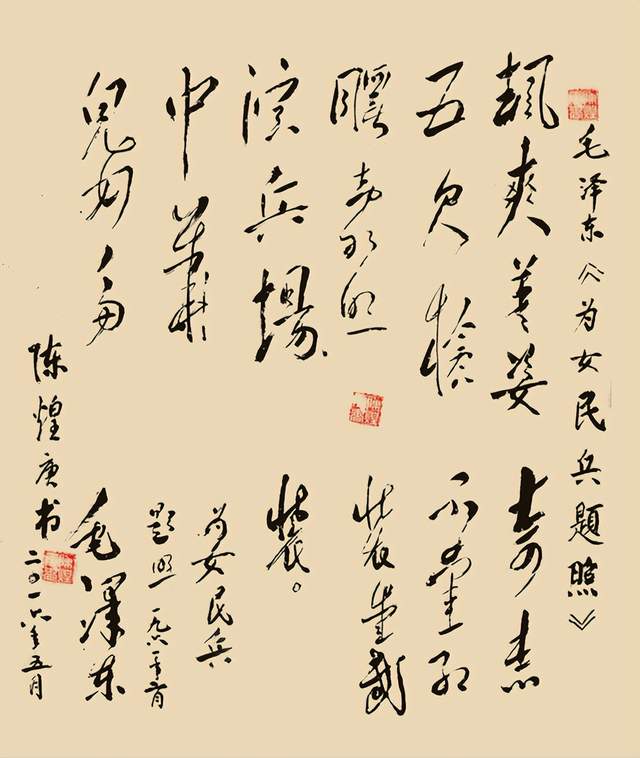 毛泽东《为女民兵题照》
颯爽英姿
五尺槍
曙光初照
演兵場
中華
兒女多
奇志
不愛紅
裝愛武
裝。
為女民兵
题照 一九六一年二月
毛澤东
陈煌庚书 二〇一六年五月